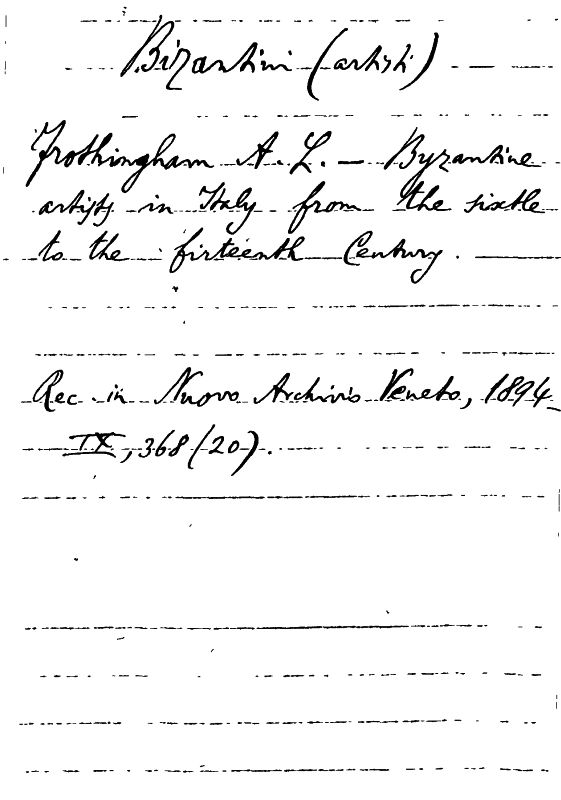 Bizantini (artisti)
Frothingham A. L. — Byzantine
artists in Italy from the sixtle
to the firteenth Century.
Rec. in Nuovo Archivio Veneto, 1894
IX, 368 (20).